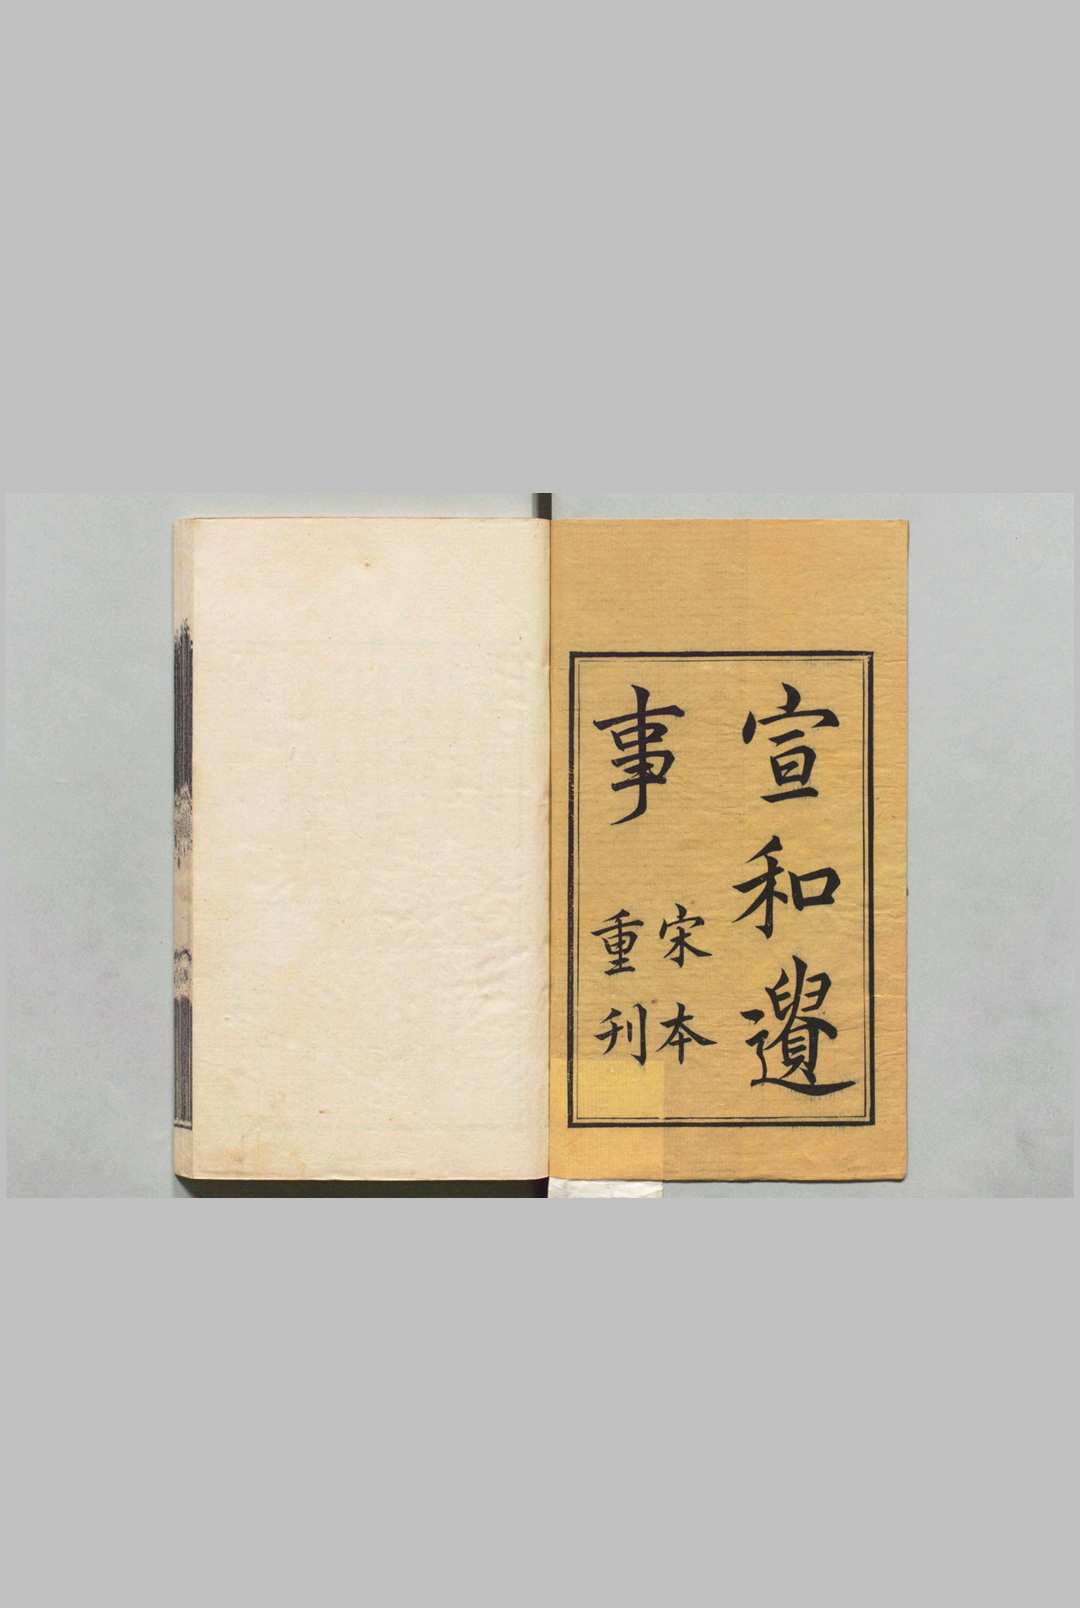 宣和遺
事
宋本
重刊